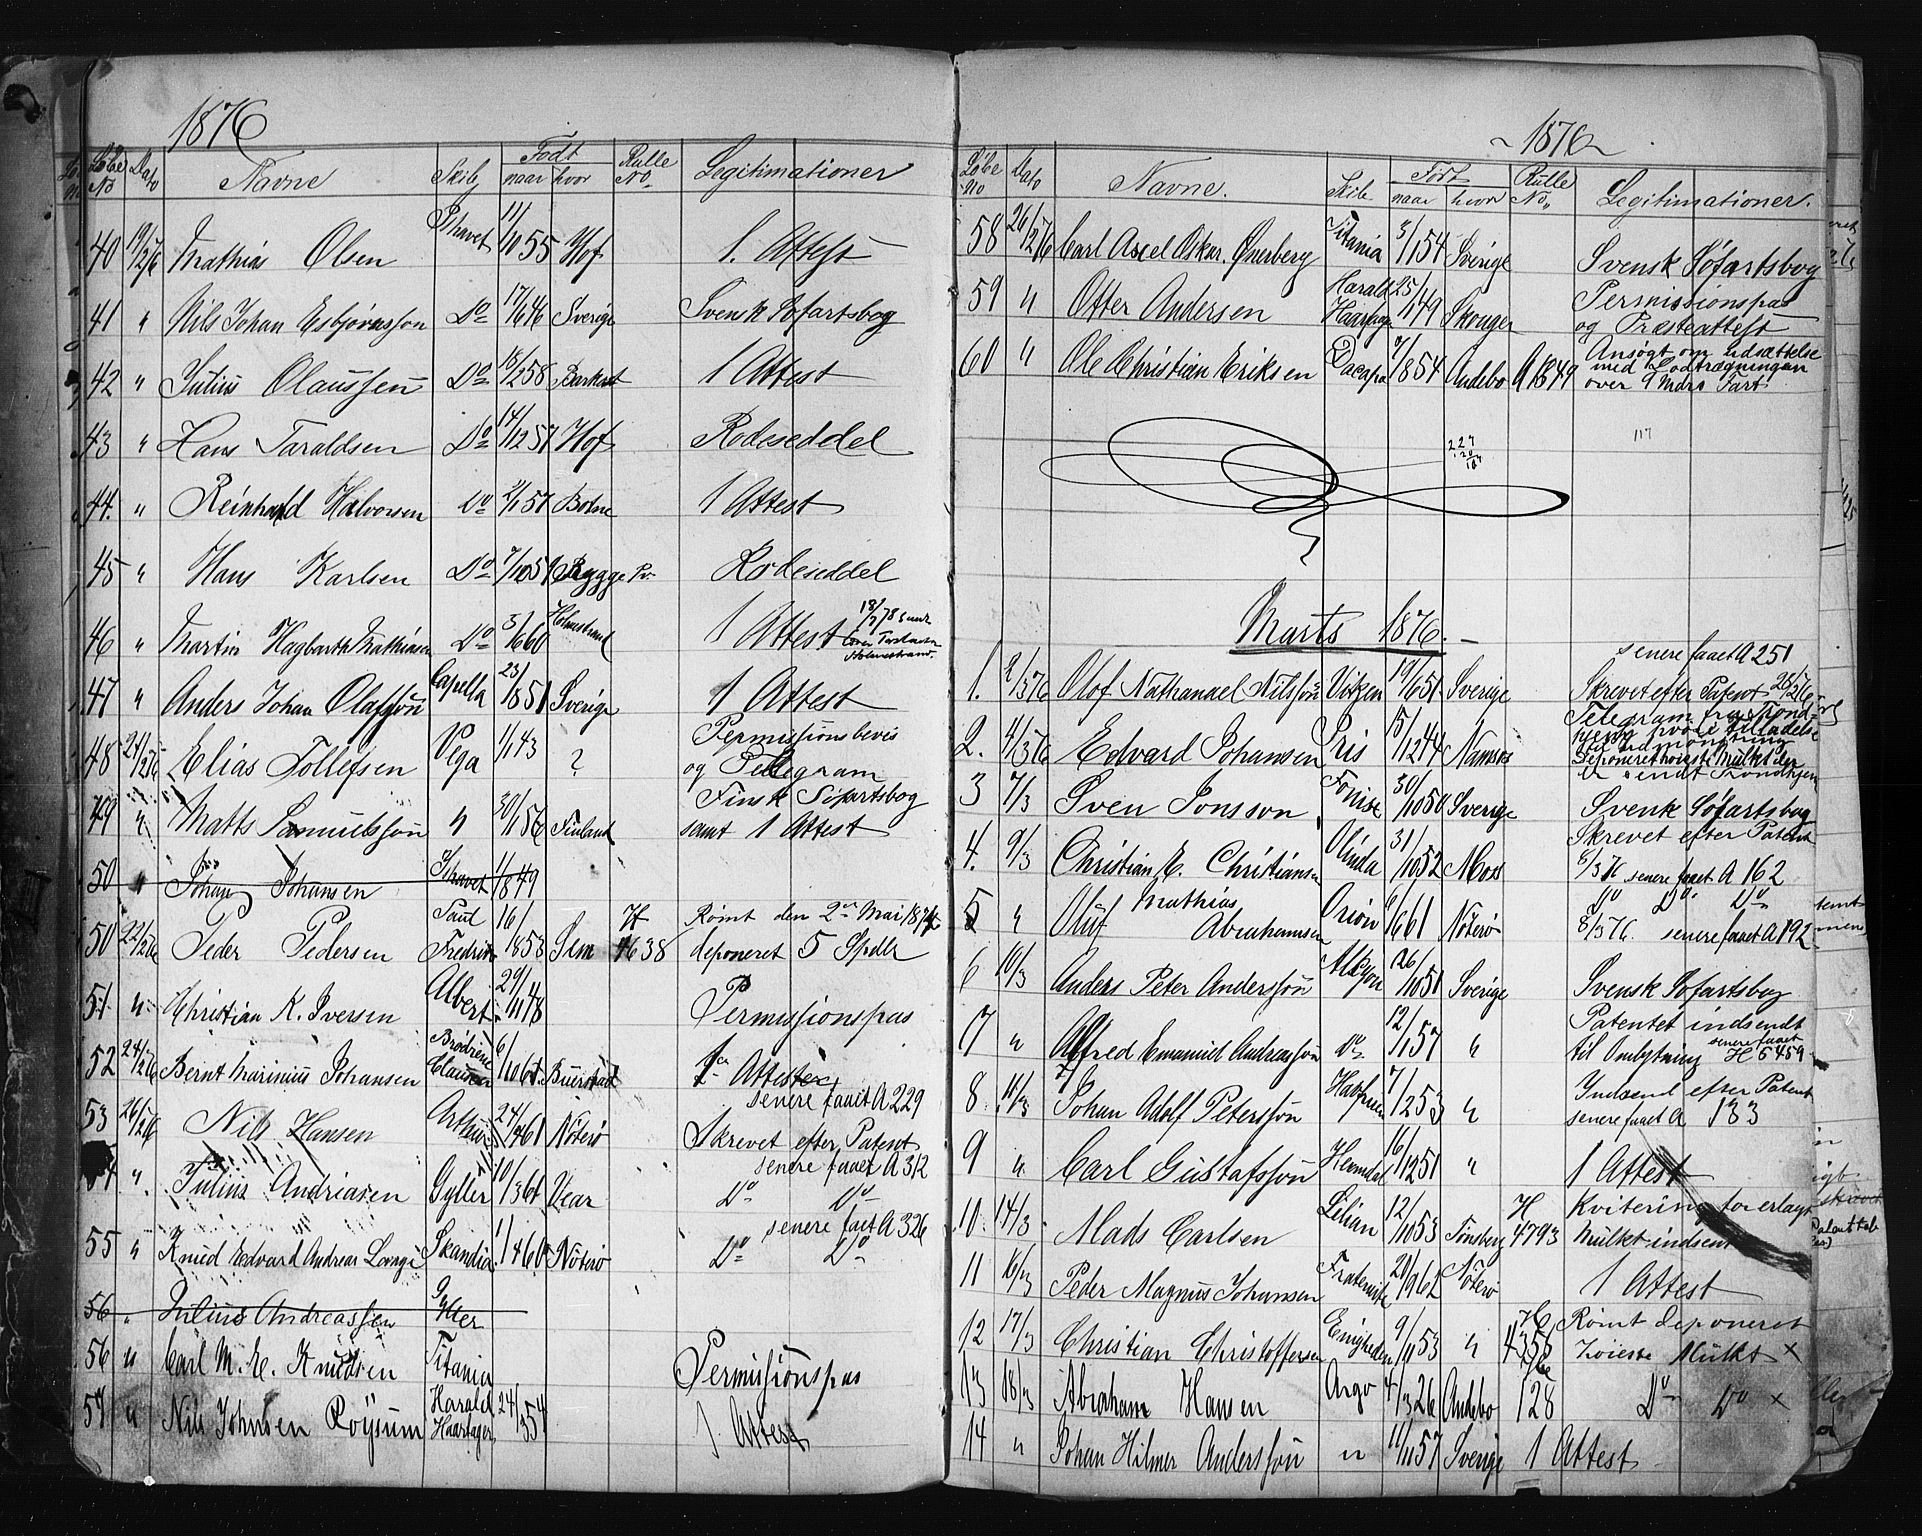 1876
Løbe No Dato Navne Skib Født naar hvor Rulle No. Legitimationer
40 19/2 76 Mathias Olsen Ishavet 11/10 55 Hof 1. Attest
41 " Nils Johan Esbjörnsson Do 17/6 46 Sverige Svensk Søfartsbog
42 " Julius Olaussen Do 18/2 58 1 Attest
43 " Hans Taraldsen Do 14/12 57 Hof Rodeseddel
44. " Reinhard Halvorsen Do 2/1 57 Botne 1 Attest
45 " Hans Karlsen Do 7/10 51 Rygge Rodeseddel
46 " Martin Hagbarth Mathiasen Do 3/6 60 Holmestrand 1 Attest 18/7 78 sendt
Holmestrand.
47 " Anders Johan Olafsson Capella 23/8 51 Sverige 1 Attest
48 21/2 76 Elias Tollefsen Vega 1/1 43 ? Permissionsbevis
og Telegram
49 " Matts Samuelsson " 30/1 56 Finland Finsk Söfartsbog
samt 1 Attest
50 " Johan Johansen Ishavet 1/8 49
50 22/2 76 Peder Pedersen Paul Fredrik 16/1 853 Sem H 4638 Rømt den 2den Mai 1874
deponeret 5 Spdlr
51 " Christian K. Iversen Albert 29/11 48 Permissionspas
52 24/2 76 Bernt Marinius Johansen Brødrene Clausen 6/10 61 1 Attest
senere faaet A 229
53 26/2 76 Nils Hansen Arthur 24/4 61 Nøterø Skrevet efter Patent
senere faaet A 312
54 " Julius Andriasen Gyller 10/3 61 Vear Do Do
senere faaet A 326
55 " Knud Edvard Andreas Skandia 1/4 60 Nøterø Do Do
56 " Julius Andreassen Gyller
56 " Carl M. E. Knudsen Titania Permissionspas
57 " Nils Johnsen Röysum Harald Haarfager 24/3 54 1 Attest
~1876~
Løbe No Dato Navne. Skib Født naar hvor Rulle No. Legitimationer.
58 26/2 76 Carl Axel Oskar. Ønerberg Titania 3/1 54 Sverige Svensk Søfartsbog
59 " Otter Andersen Harald Haarfager 25/1 49 Skouger Permissionspas
og Præsteattest
60 " Ole Christian Eriksen Dacapo 9/8 54 Andebo A 1849 Ansøgt om udsættelse
med Lodtrægningen
over 9 Mdrs Fart
227
120
107
117
Marts 1876.
senere faaet A 251
1. 2/3 76 Olof Nathanael Nilsson Viken 19/6 51 Sverige Skrevet efter Patent 28/2 76
2. 4/3 76 Edvard Johansen Iris 5/12 44 Namsos Telegram fra Trond-
hjem hvori tilladelse
til udmönstring
Deponeret höieste Mulkt der
er sendt Trondhjem
3 7/3 Sven Jonsson Fönixe 30/10 50 Sverige Svensk Søfartsbog
4. 9/3 Christian E. Christiansen Olinda 31/10 52 Moss Skrevet efter Patent
8/3 76 senere faaet A 162
5 " Oluf Mathias Abrahamsen Orion 6/6 61 Nøterø Do Do Do
8/3 76. senere faaet A 192
6 10/3 Anders Peter Andersson Alcyon 26/10 51 Sverige Svensk Søfartsbog
7 " Alfred Emanuel Andreasson Do 12/1 57 " Patentet indsendt
til Ombytning senere faaet H 5459
8 11/3 Johan Adolf Petersson Havfruen 7/12 53 " Indsend efter Patent
senere faaet A 133
9 " Carl Gustafsson Heimdal 16/12 51 " 1 Attest
10. 14/3 Mads Carlsen Lilian 12/10 53 Tönsberg H 4793 Kvitering for erlagt
Mulkt indsent
11 16/3 Peder Magnus Johansen Fraternite 29/9 62 Nøterø 1 Attest
12 17/3 Christian Christoffersen Enigheden 9/11 53 " H 4358 Rømt deponeret
høieste Mulkt ×
13 18/3 Abraham Hansen Argo 4/3 26 Andebo 128 Do Do ×
14 " Johan Hilmer Andersson " 10/11 57 Sverige 1 Attest